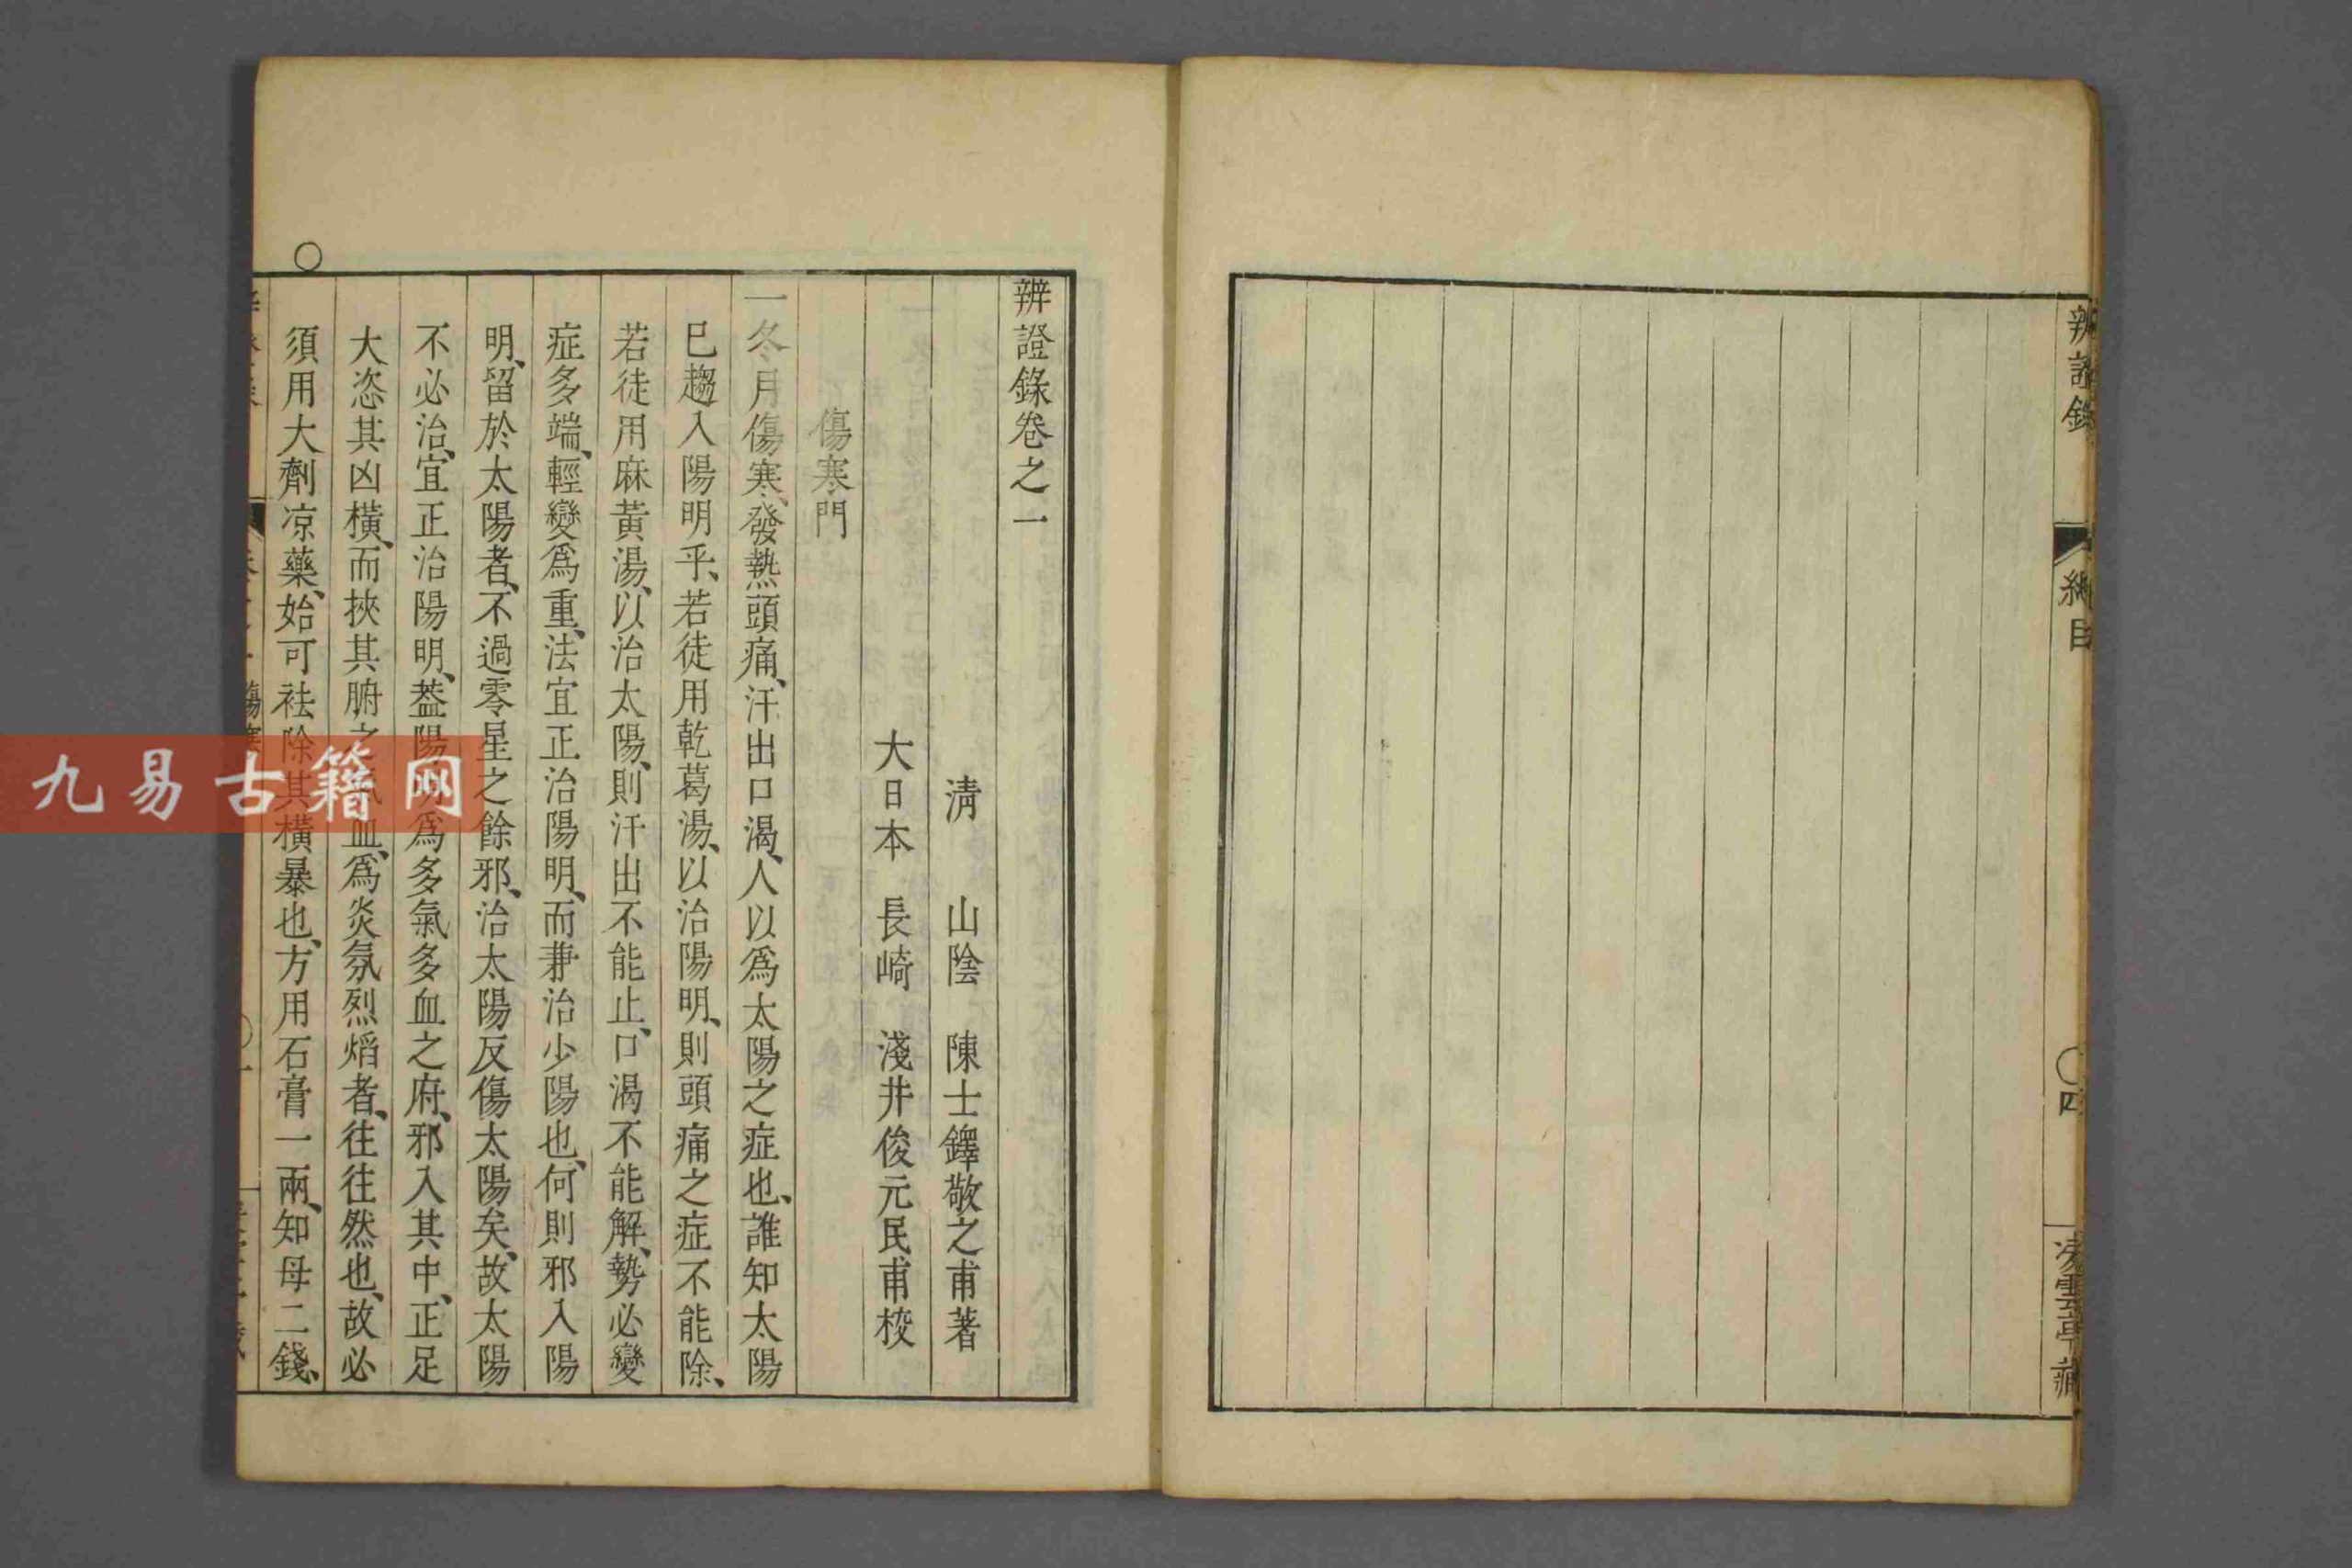 辨證錄
綱目
〇四
凌雲亭藏
辨證錄卷之一
清 山陰 陳士鐸敬之甫著
大日本 長崎 淺井俊元民甫校
傷寒門
一冬月傷寒、發熱頭痛、汗出口渴、人以爲太陽之症也、誰知太陽
已趨入陽明乎、若徒用乾葛湯、以治陽明、則頭痛之症不能除、
若徒用麻黃湯、以治太陽、則汗出不能止、口渴不能解、勢必變
症多端、輕變爲重、法宜正治陽明、而兼治少陽也、何則邪入陽
明、留於太陽者、不過零星之餘邪、治太陽反傷太陽矣、故太陽
不必治、宜正治陽明、葢陽明爲多氣多血之府、邪入其中、正足
大恣其凶橫、而挾其腑之氣血、爲炎氛烈熖者、徃徃然也、故必
須用大劑凉藥、始可祛除其橫暴也、方用石膏一兩、知母二錢、
〇
九易古籍网